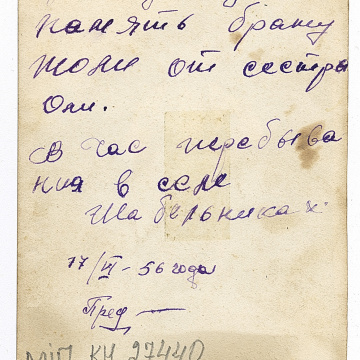 память брату
Жони от сестры
Оли.
В час перебыва
ния в селе
Шабельниках.
17/VI - 56 года
Пред
МІП КН 27440